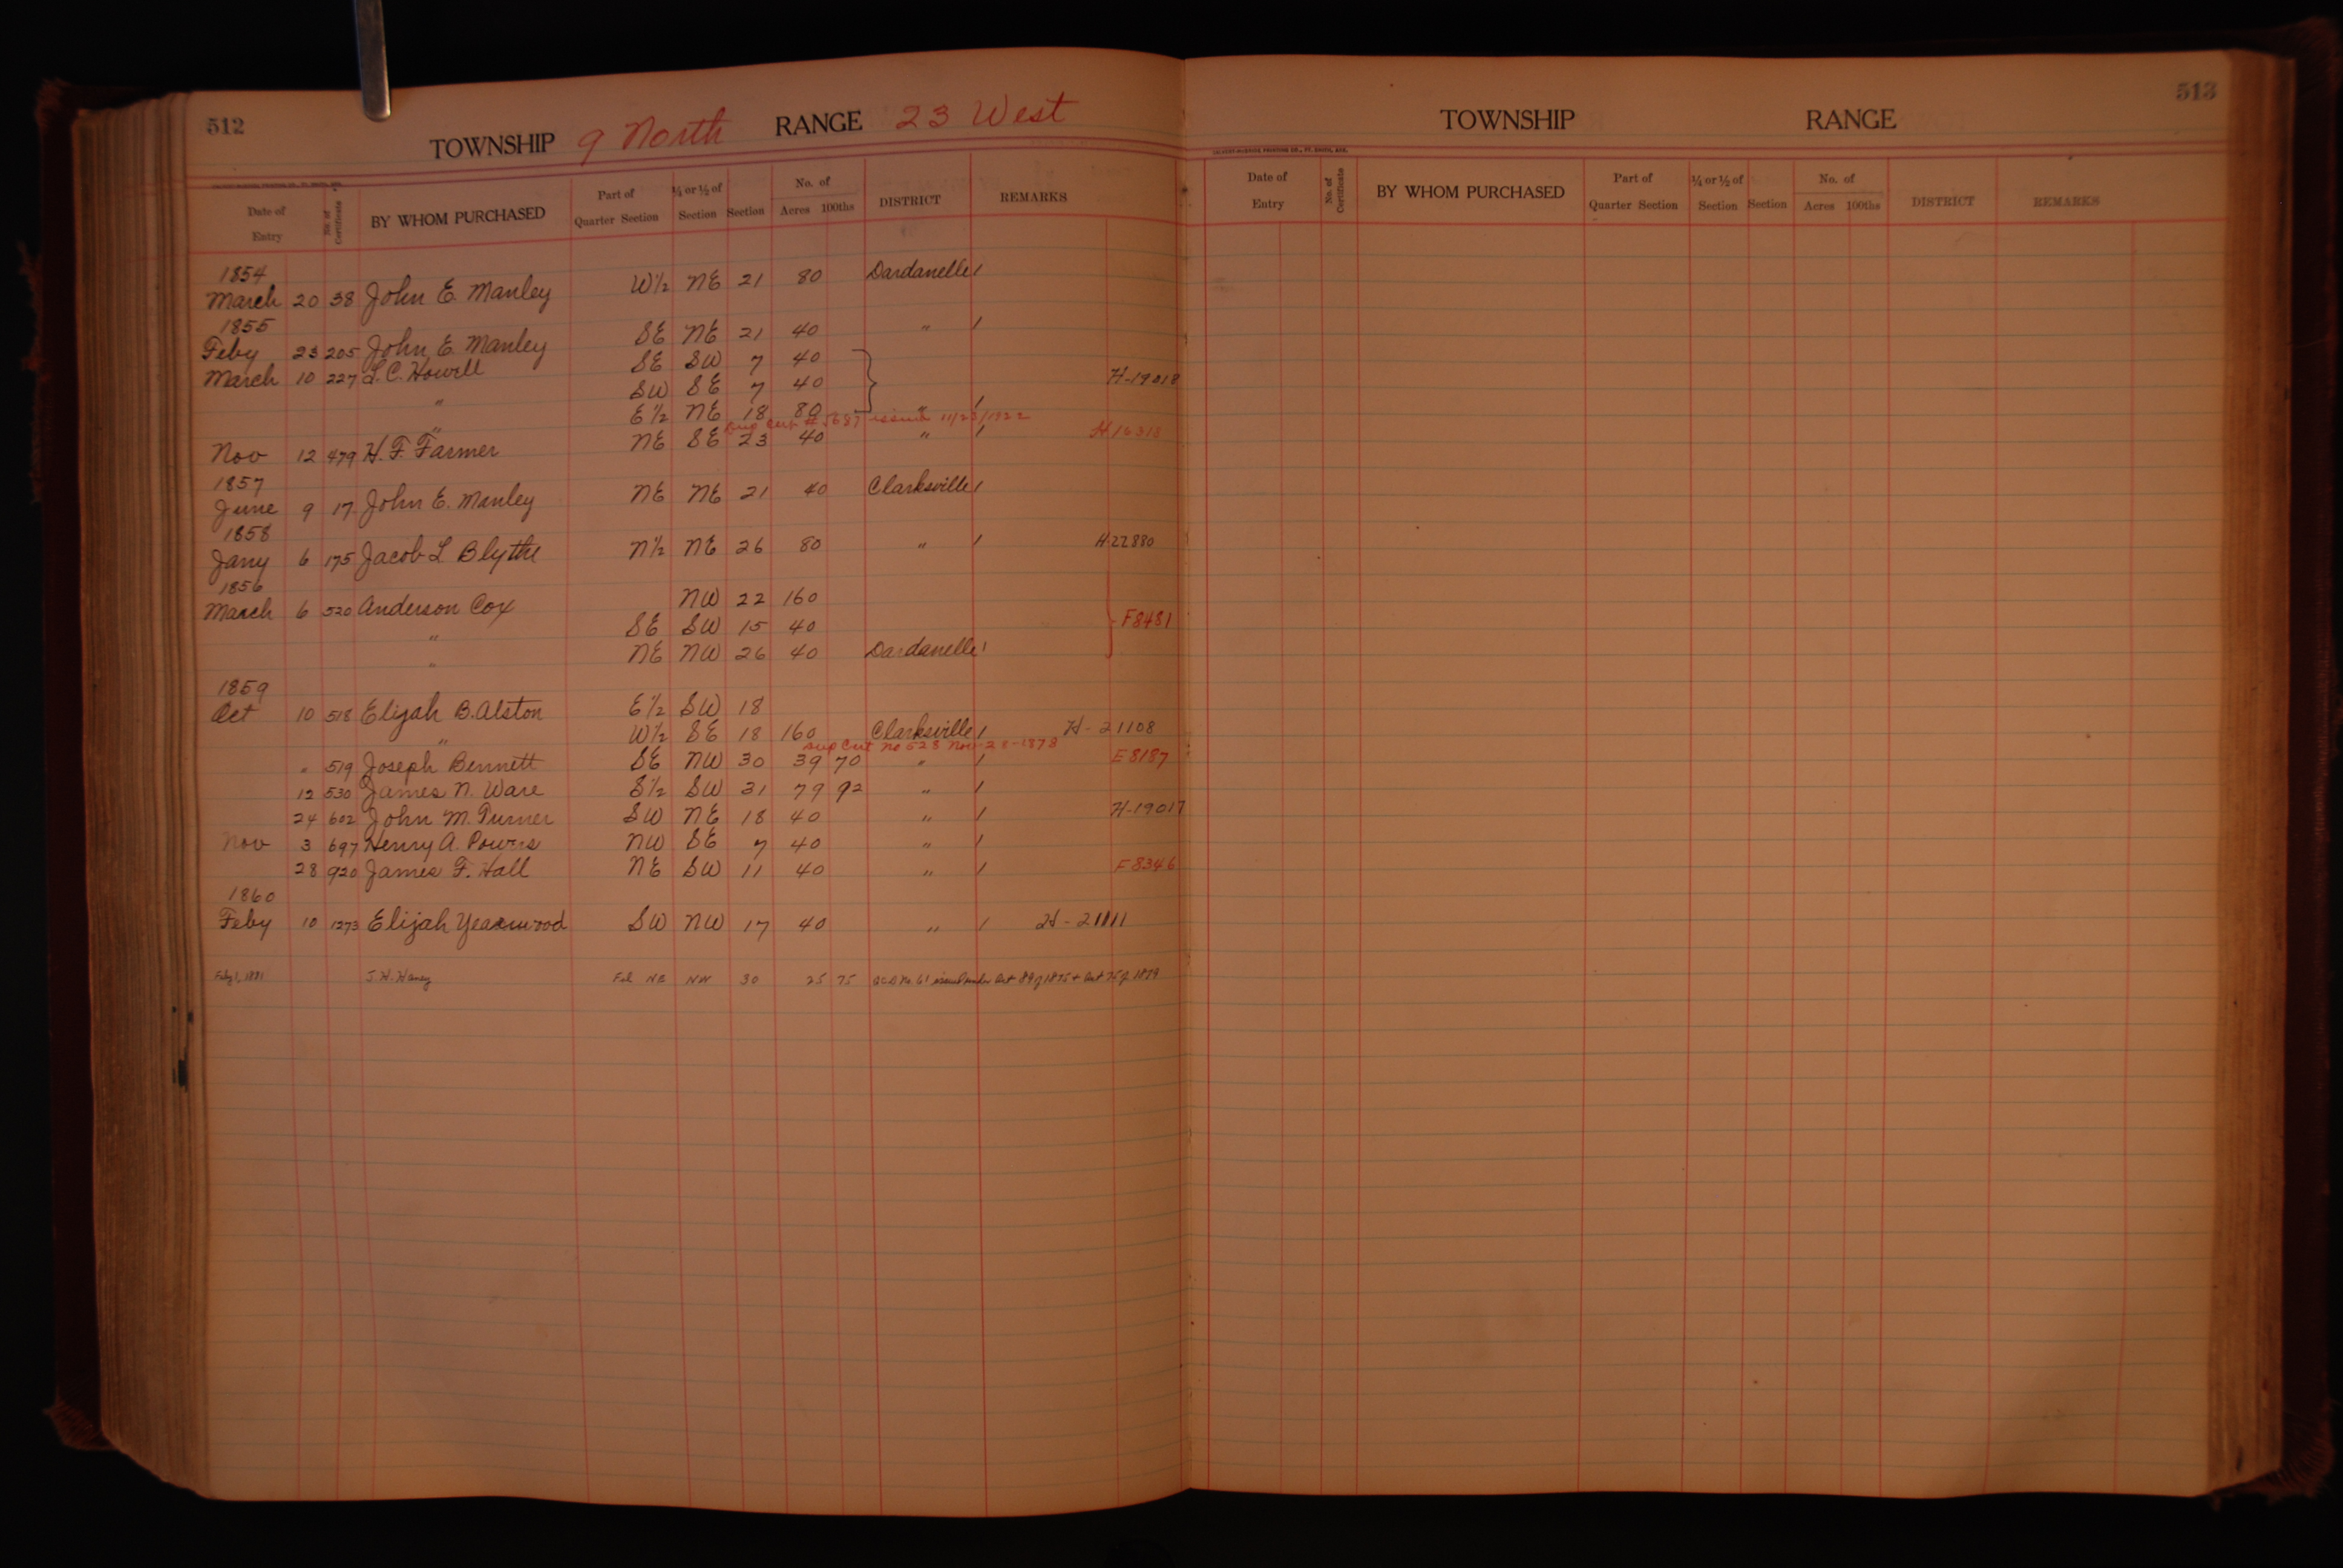 512
TOWNSHIP 9 North RANGE 23 West
Date of Entry No. of Certificate BY WHOM PURCHASED Part of Quarter Section ¼ or ½ of Section Section No. of Acres 100ths DISTRICT REMARKS
1854
March 20 38 John E. Manley W½ NE 21 80 Dardanelle /
1855
Feby 23 205 John E. Manley SE NE 21 40 " /
March 10 227 L. C. Howell SE SW 7 40
" SW SE 7 40 H-19018
" E½ NE 18 80 " /
Sup Cert # 5687 issued 11/23/1922
Nov 12 479 H. F. Farmer NE SE 23 40 " / H16318
1857
June 9 17 John E. Manley NE NE 21 40 Clarksville /
1858
Jany 6 175 Jacob L Blythe N½ NE 26 80 " / H-22880
1856
March 6 520 Anderson Cox NW 22 160
" SE SW 15 40 F8481
" NE NW 26 40 Dardanelle /
1859
Oct 10 518 Elijah B. Alston E½ SW 18
" W½ SE 18 160 Clarksville / H-21108
Sup Cert No 528 Nov-28-1878
" 519 Joseph Bennett SE NW 30 39 70 " / E8187
12 530 James N. Ware S½ SW 31 79 92 " /
24 602 John M. Turner SW NE 18 40 " / H-19017
Nov 3 697 Henry A. Powers NW SE 7 40 " /
28 920 James F. Hall NE SW 11 40 " / F8346
1860
Feby 10 1273 Elijah Yearwood SW NW 17 40 " / H-21111
Feby 1, 1881 J. H. Haney Fol NE NW 30 25 75 No 61 issued under Act 89 of 1875 + Act 75 of 1879
513
TOWNSHIP RANGE
CALVERT-McBRIDE PRINTING CO., FT. SMITH, ARK.
Date of Entry No. of Certificate BY WHOM PURCHASED Part of Quarter Section ¼ or ½ of Section Section No. of Acres 100ths DISTRICT REMARKS